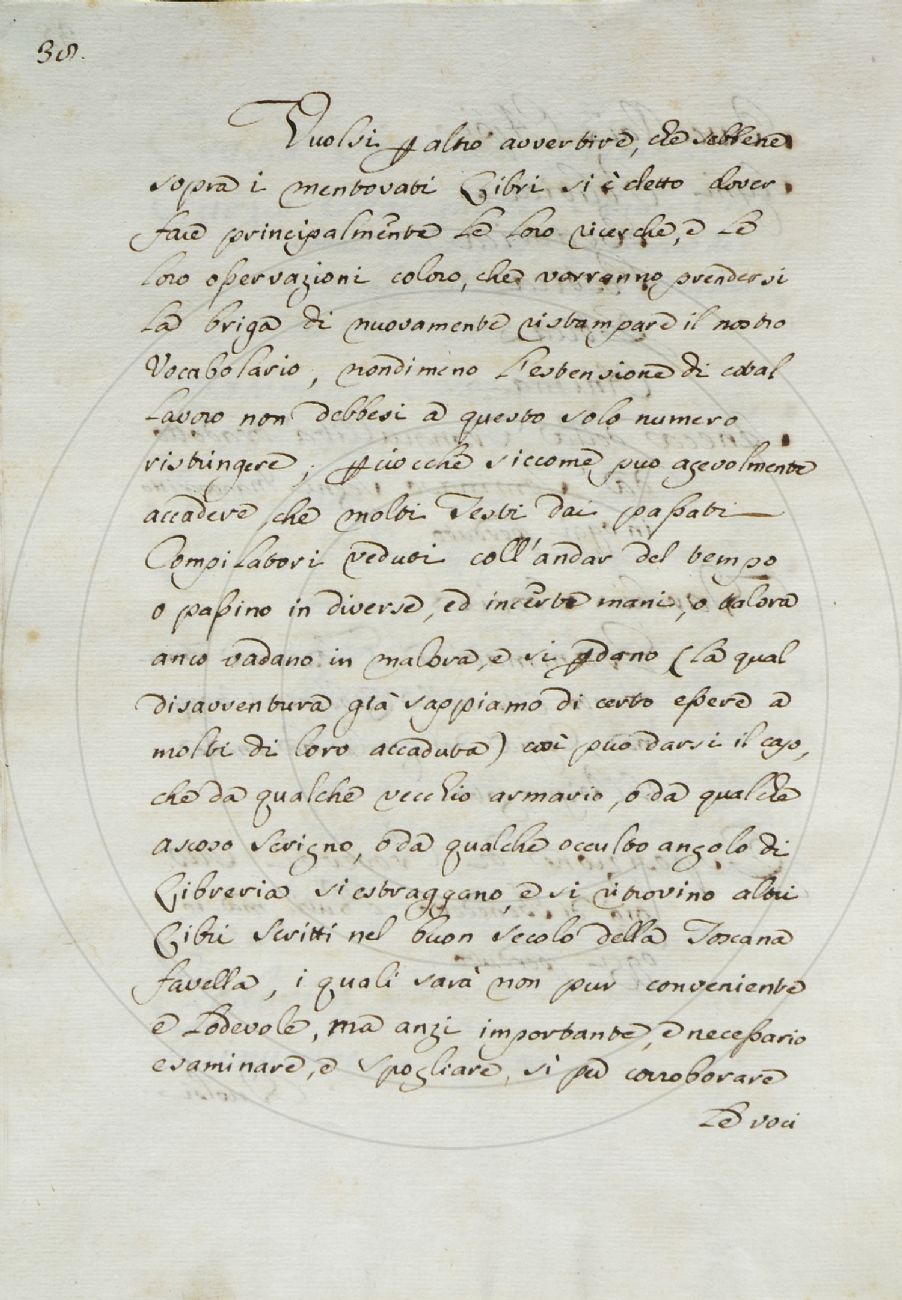 38.
Vuolsi ꝑ altro avvertire, che sebbene
sopra i mentovati Libri si è detto dover
fare principalmente le loro ricerche, e le
loro osservazioni coloro, che vorranno prendersi
la briga di nuovamente ristampare il nostro
Vocabolario, nondimeno l'estensione di cotal
lavoro non debbesi a questo solo numero
ristringere; ꝑciocchè siccome può agevolmente
accadere, che molti Testi dai passati
Compilatori veduti coll'andar del tempo
o passino in diverse, ed incerte mani, o talora
anco vadano in malora, e si ꝑdano (la qual
disavventura già sappiamo di certo essere a
molti di loro accaduta) così può darsi il caso,
che da qualche vecchio armario, o da qualche
ascoso scrigno, o da qualche occulto angolo di
Libreria si estraggano, e si ritrovino altri
Libri scritti nel buon secolo della Toscana
favella, i quali sarà non pur conveniente
e lodevole, ma anzi importante, e necessario
esaminare, e spogliare, sì per corroborare
le voci